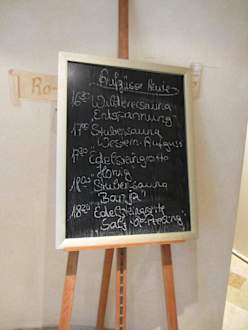 Aufgüsse Heute
16³⁰ Wilderersauna
"Entspannung"
17⁰⁰ Stubensauna
"Western Aufguss"
17³⁰ Edelsteingrotte
"Honig"
18⁰⁰ Stubensauna
"Banja"
18³⁰ Edelsteingrotte
"Salz
Ro